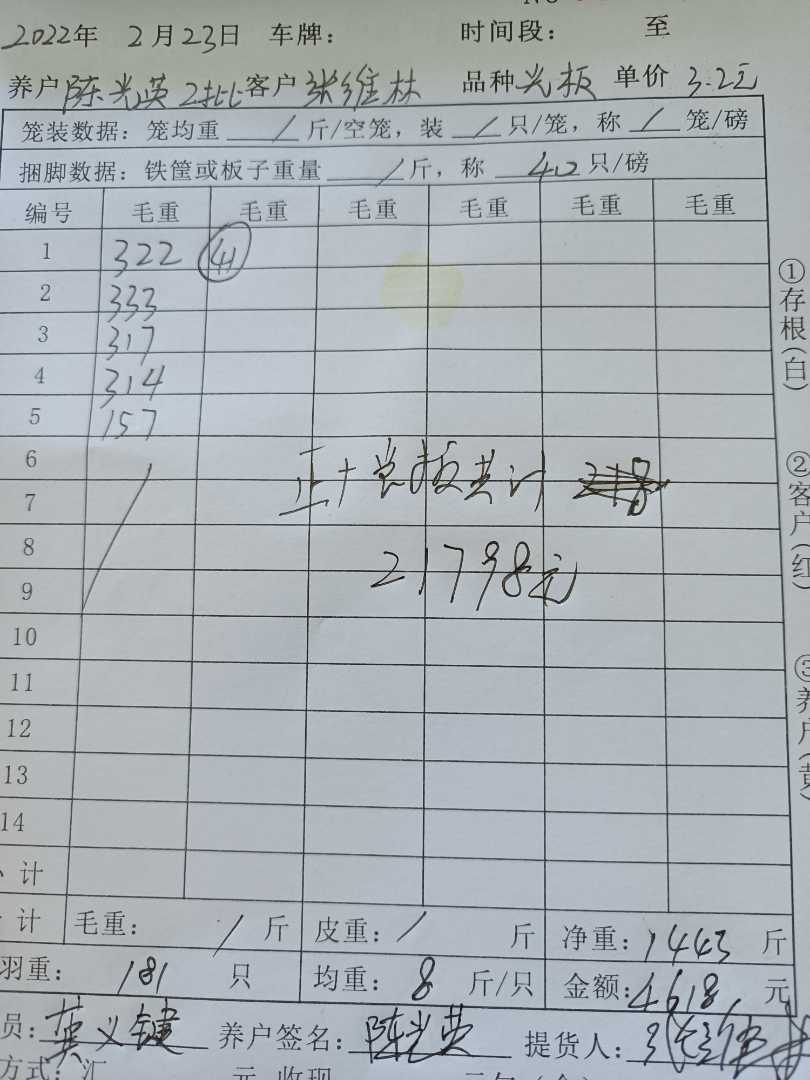 2022年 2月23日 车牌： 时间段： 至
养户 陈光英2批 客户 张维林 品种 光板 单价 3.2元
笼装数据：笼均重 / 斤/空笼，装 / 只/笼，称 / 笼/磅
捆脚数据：铁筐或板子重量 / 斤，称 40 只/磅
编号 毛重 毛重 毛重 毛重 毛重 毛重
1 322 41
2 333
3 317
4 314
5 157
6
正+光板共计
7
8
21798元
9
10
11
12
13
14
计
计 毛重： / 斤 皮重： / 斤 净重：1443 斤
羽重： 181 只 均重： 8 斤/只 金额：4618 元
员： 义键 养户签名：陈光英 提货人：
方式：汇 元 收现
①存根(白) ②客户(红) ③养户(黄)